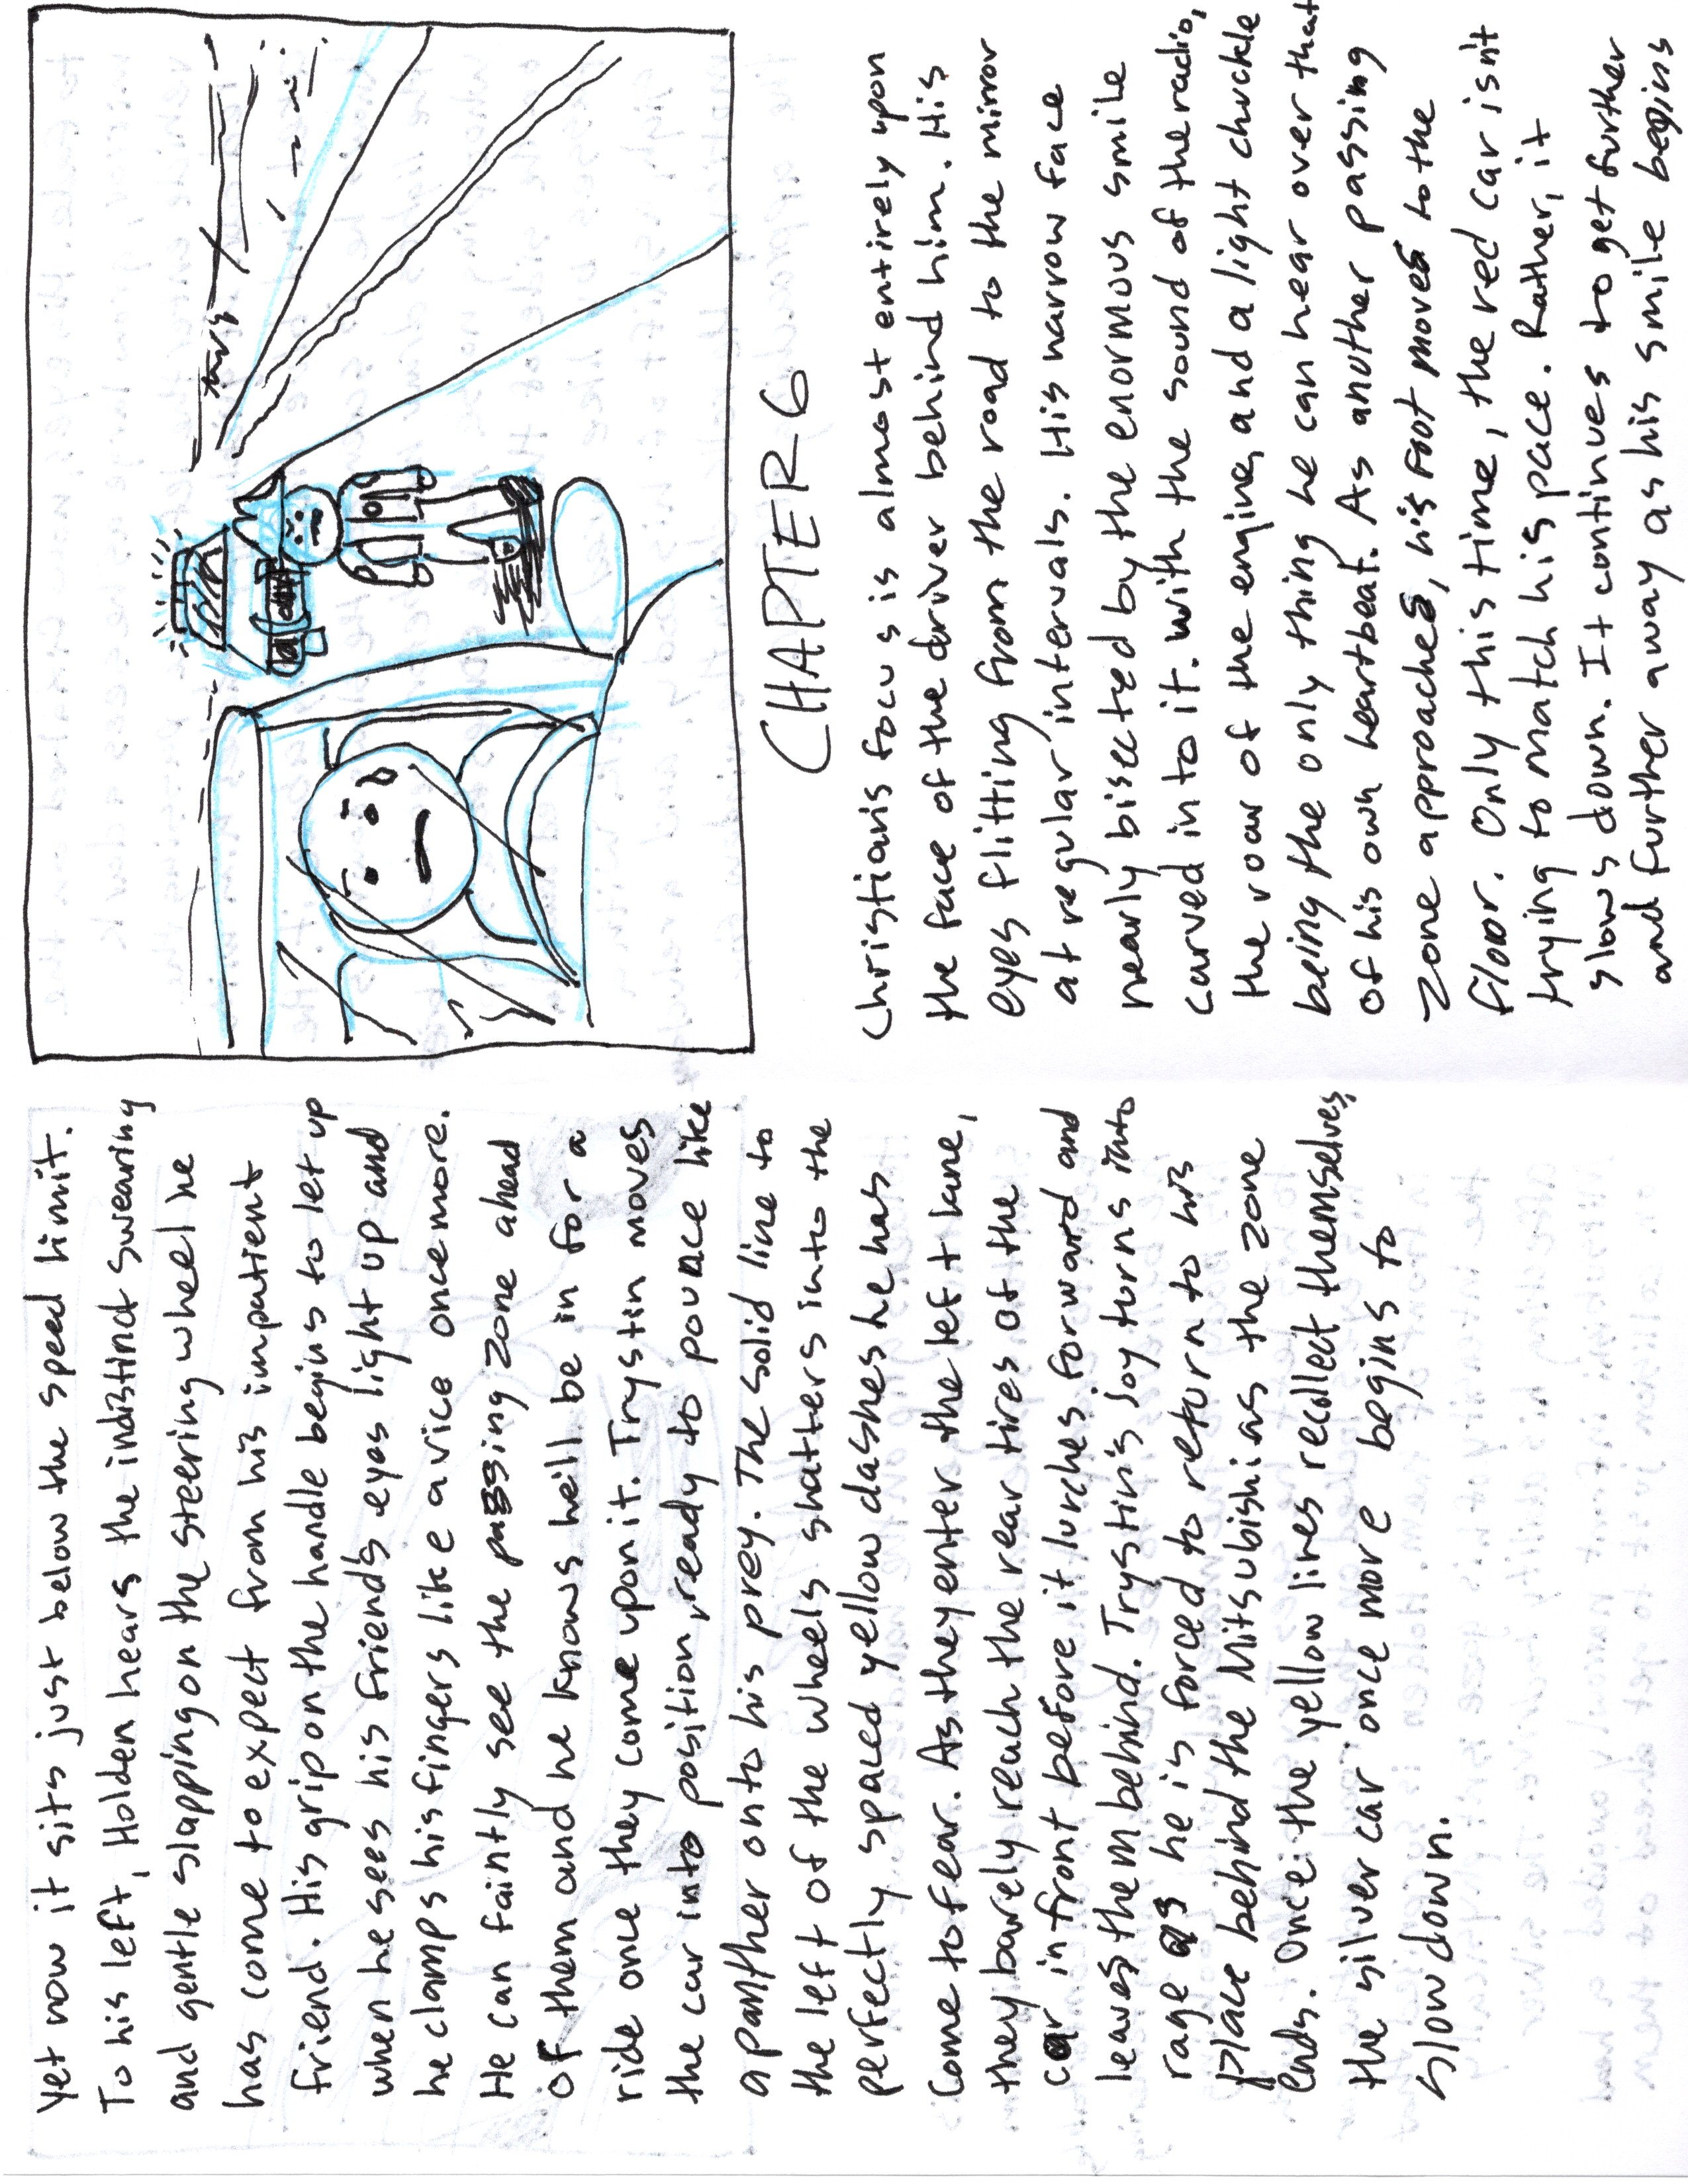 yet now it sits just below the speed limit.
To his left, Holden hears the indistinct swearing
and gentle slapping on the steering wheel he
has come to expect from his impatient
friend. His grip on the handle begins to let up
when he sees his friend's eyes light up and
he clamps his fingers like a vice once more.
He can faintly see the passing zone ahead
of them and he knows he'll be in for a
ride once they come upon it. Trystin moves
the car into position, ready to pounce like
a panther onto his prey. The solid line to
the left of the wheels shatters into the
perfectly spaced yellow dashes he has
come to fear. As they enter the left lane,
they barely reach the rear tires of the
car in front before it lurches forward and
leaves them behind. Trystin's joy turns into
rage as he is forced to return to his
place behind the Mitsubishi as the zone
ends. Once the yellow lines recollect themselves,
the silver car once more begins to
slow down.
CHAPTER 6
Christian's focus is almost entirely upon
the face of the driver behind him. His
eyes flitting from the road to the mirror
at regular intervals. His narrow face
nearly bisected by the enormous smile
carved into it. With the sound of the radio,
the roar of the engine, and a light chuckle
being the only thing he can hear over that
of his own heartbeat. As another passing
zone approaches, his foot moves to the
floor. Only this time, the red car isn't
trying to match his pace. Rather, it
slows down. It continues to get further
and further away as his smile begins